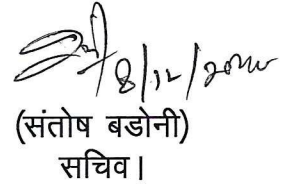 8/12/2020
(संतोष बडोनी)
सचिव।